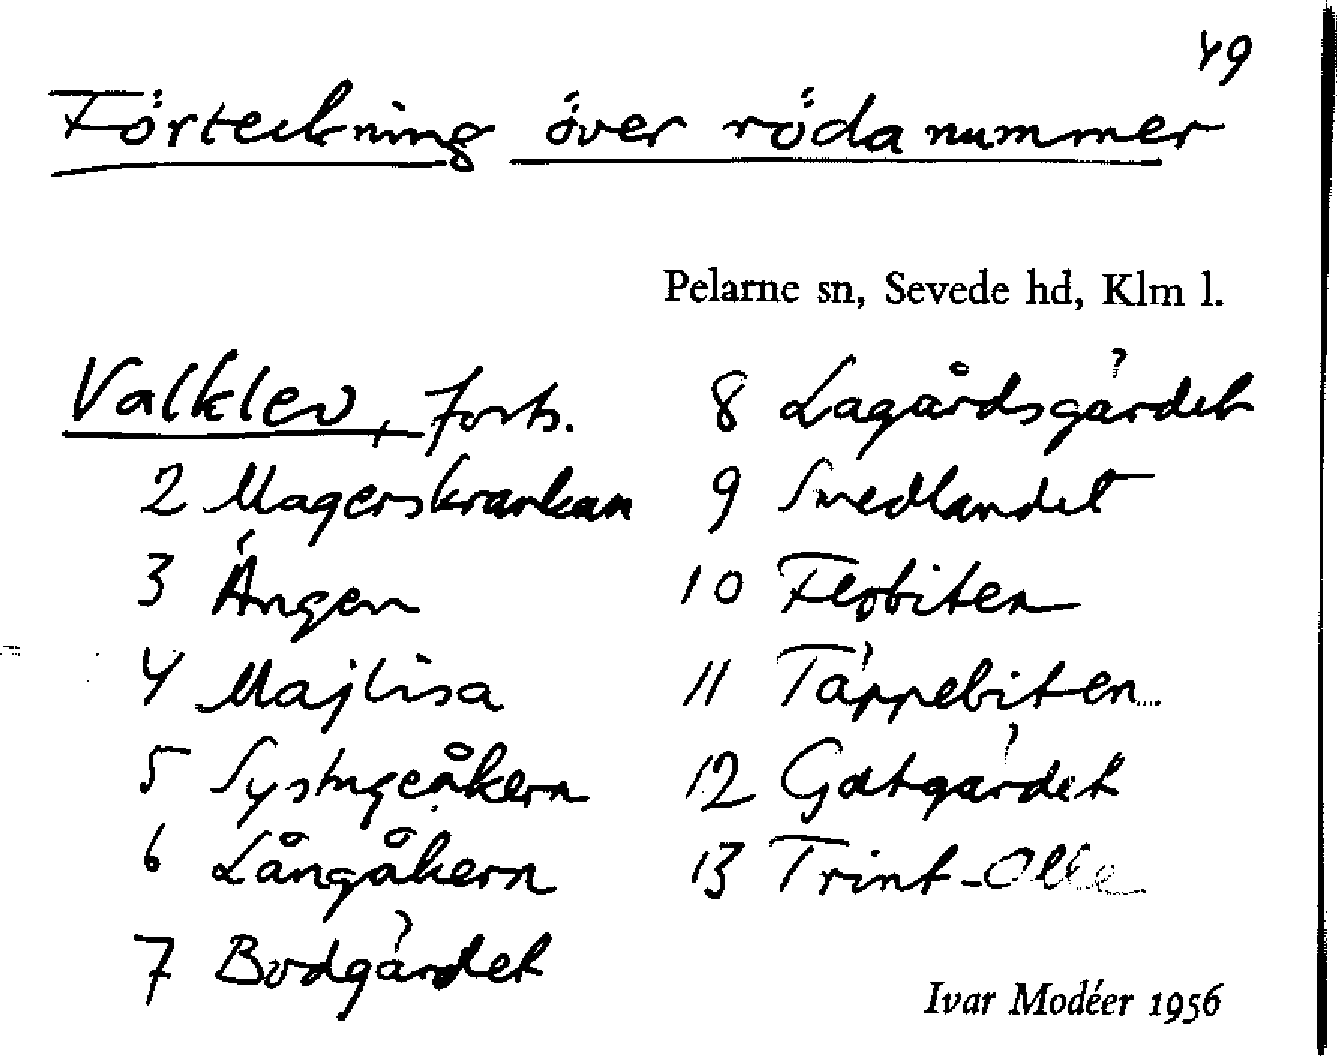 49
Förteckning över röda nummer
Pelarne sn, Sevede hd, Klm l.
Valklev, forts.
2 Magerskrankan
3 Ängen
4 Majlisa
5 Systugeåkern
6 Långåkern
7 Bodgärdet
8 Lagårdsgärdet
9 Smedlandet
10 Flobiten
11 Täppebiten
12 Gatgärdet
13 Trint-Olle
Ivar Modéer 1956